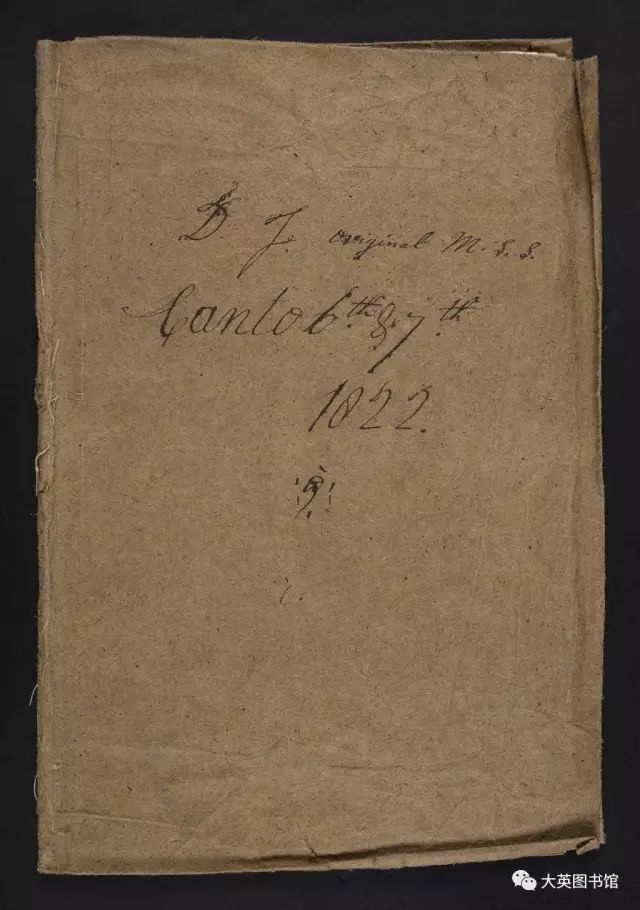 D. J. original M.S.S.
Canto 6th & 7th
1822.
大英图书馆